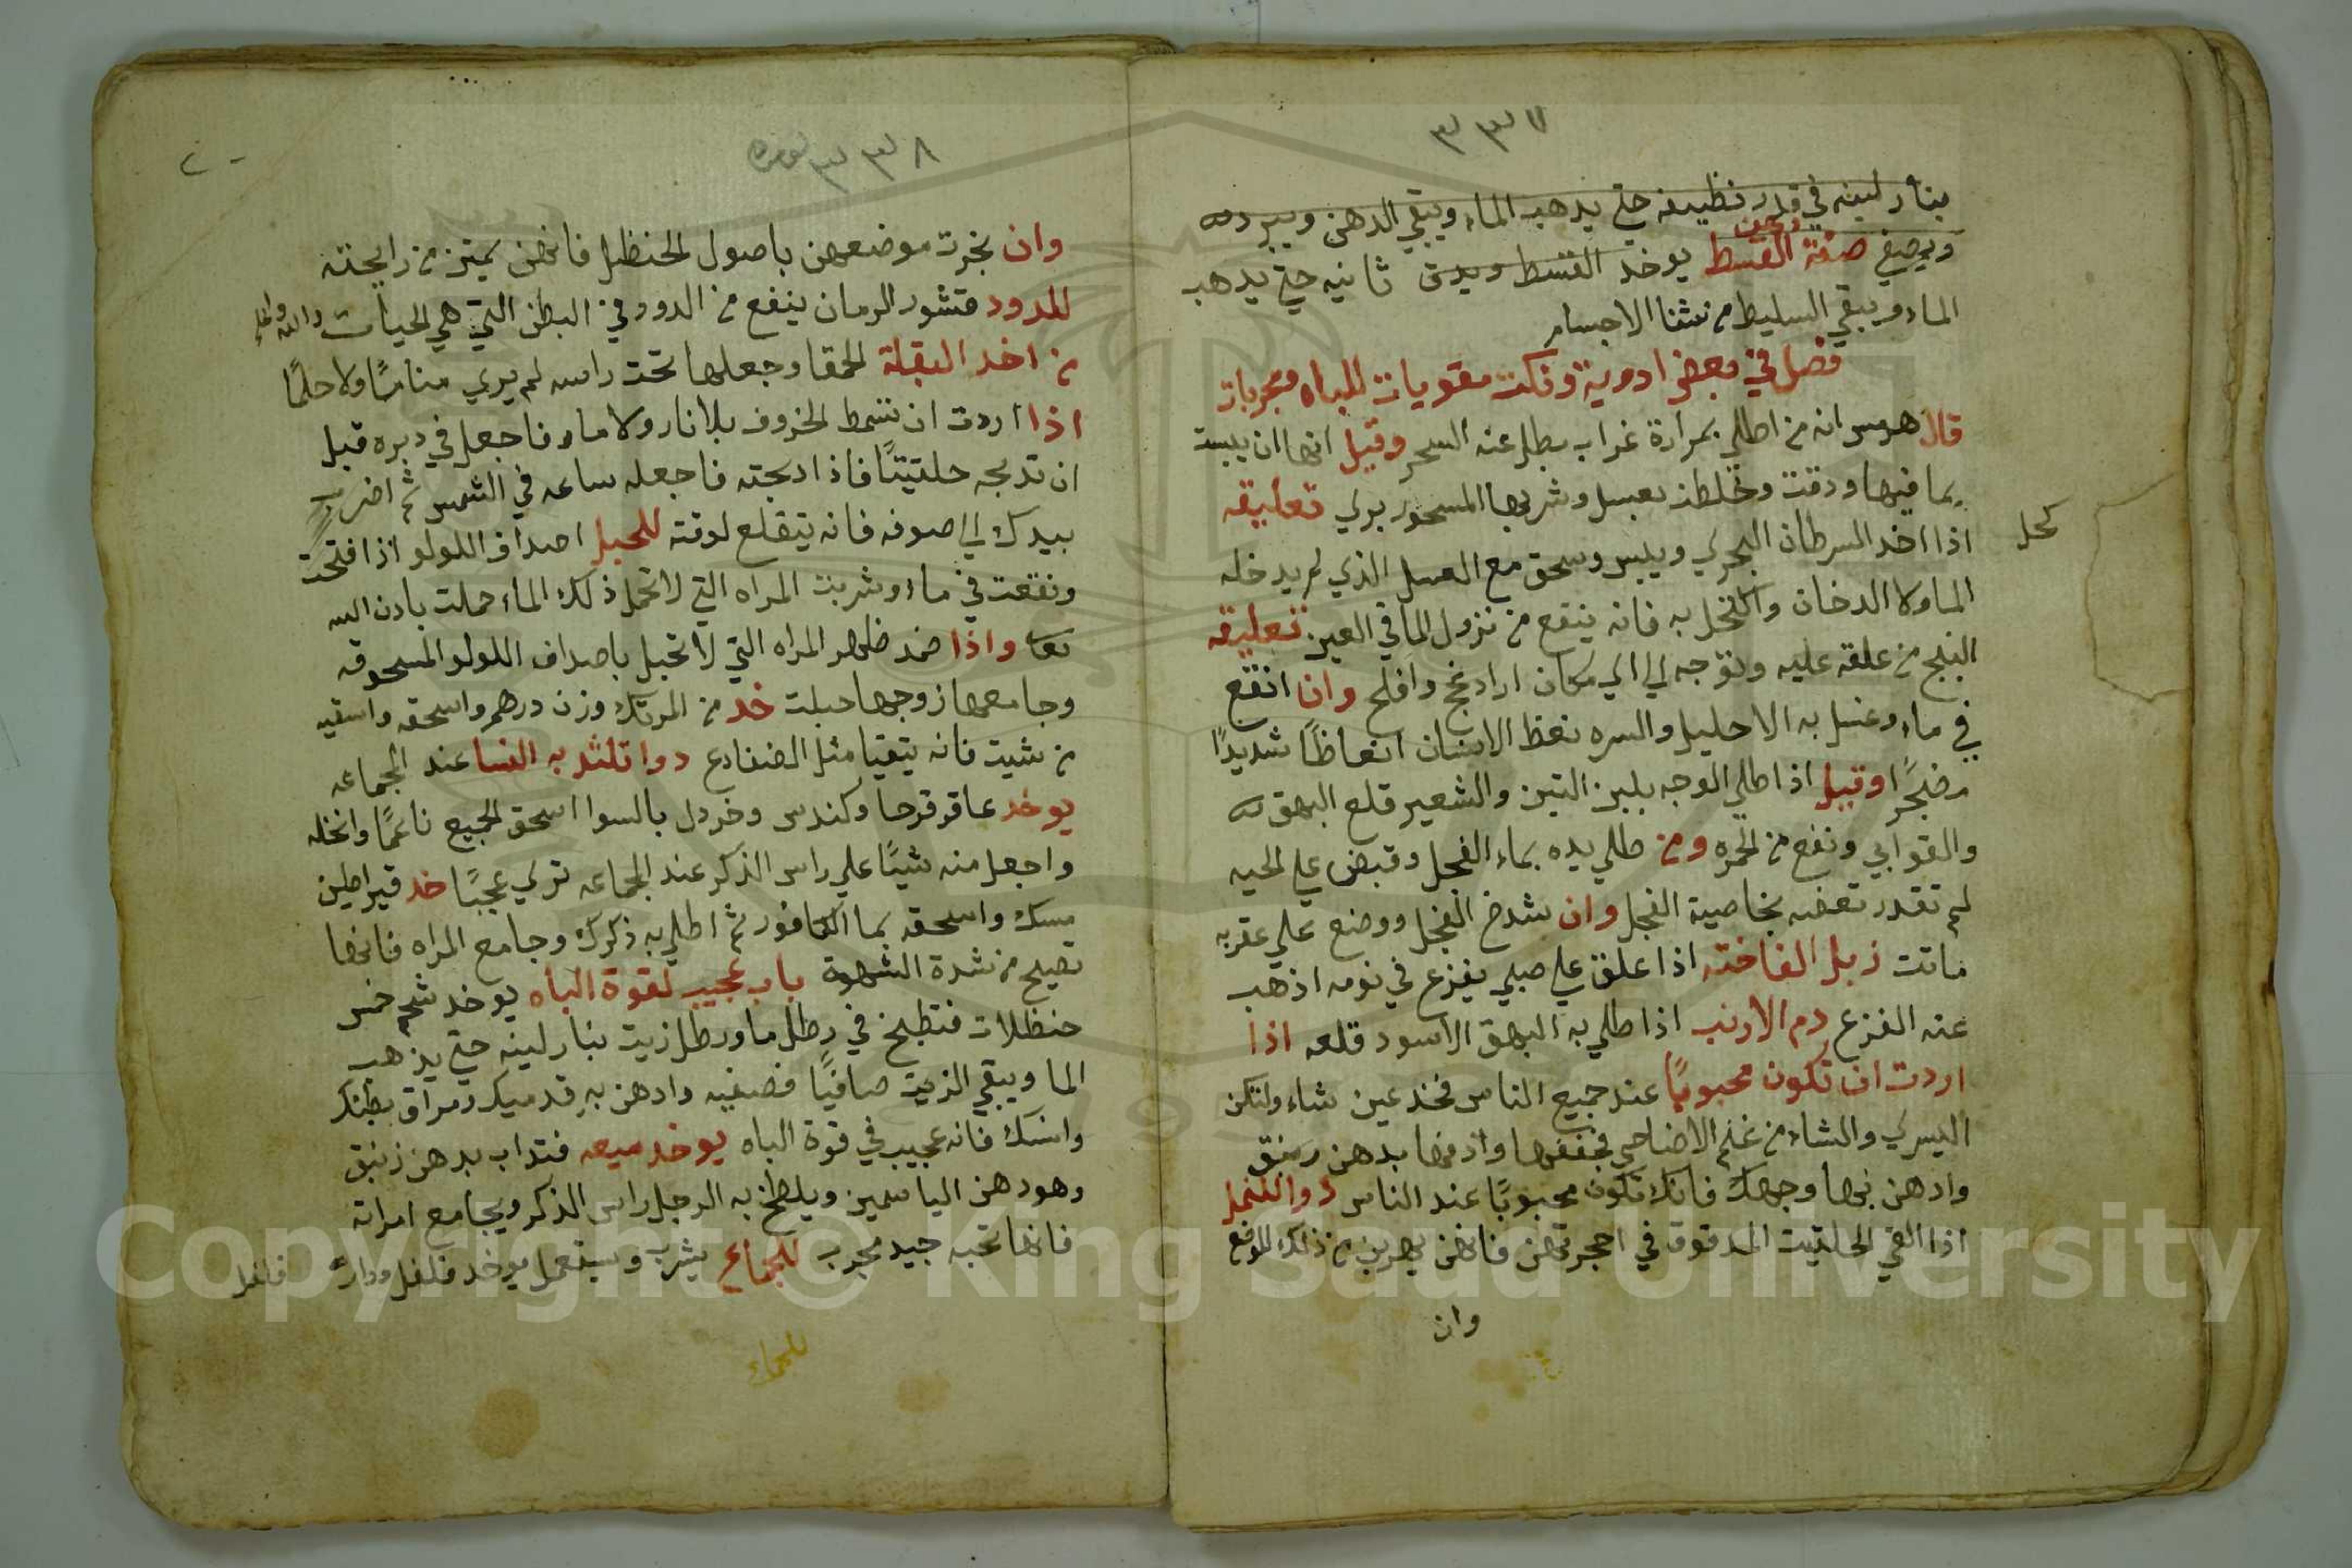 ٣٣٧
بنار لينه في قدر نظيفه حتي يدهب الماء ويبقي الدهن ويبرد
ويصفي صفة دهن القسط يوخد القسط ويدق ثانيه حتي يدهب
الماء ويبقي السليط من شفا الاجسام
فصل في بعض ادوية ونكت مقويات للباه ومجربات
قال هرمس انه من اطلي بمرارة غراب بطل عنه السحر وقيل انها ان يبست
بما فيها ودقت وخلطت بعسل وشربها المسحور بري تعليقه
كحل
اذا اخد السرطان البحري ويبس وسحق مع العسل الذي لم يدخله
الما ولا الدخان واكتحل به فانه ينفع من نزول الما في العين تعليقه
البنج من علقه عليه وتوجه الي اي مكان اراد نجح وافلح وان انقع
في ماء وغسل به الاحليل والسره نعظ الانسان انعاظًا شديدًا
مضجرًا وقيل اذا طلي الوجه بلبن التين والشعير قلع البهق
والقوابي ونفع من الحمره ومن طلي يده بماء الفجل وقبض علي الحيه
لم تقدر تعضه بخاصية الفجل وان شدخ الفجل ووضع علي عقربه
ماتت زبل الفاخته اذا علق علي صبي يفزع في نومه اذهب
عنه الفزع دم الارنب اذا طلي به البهق الاسود قلعه اذا
اردت ان تكون محبوبًا عند جميع الناس فخد عين شاه ولتكن
اليسري والشاه من غنم الاضاحي فجففها وادفها بدهن زنبق
وادهن بها وجهك فانك تكون محبوبًا عند الناس دوا للنمل
اذا القي الحلتيت المدقوق في احجرتهن فانهن يهربن من ذلك الموضع
وان
٣٣٨
وان بخرت موضعهن باصول الحنظل فانهن يمتن من رايحته
للدود قشور الرمان ينفع من الدود في البطن التي هي الحيات والله اعلم
من اخد البقلة الحمقا وجعلها تحت راسه لم يري منامًا ولا حلمًا
اذا اردت ان تسمط الخروف بلا نار ولا ماء فاجعل في دبره قبل
ان تدبحه حلتيتًا فاذا ادبحته فاجعله ساعه في الشمس ثم اضرب
بيدك الي صوفه فانه يتقلع لوقته للحبل اصداف اللولو اذا فتحت
ونقعت في ماء وشربت المراه التي لا تحمل ذلك الماء حملت بادن الله
تعا واذا ضمد ظهر المراه التي لا تحبل باصداف اللولو المسحوقه
وجامعها زوجها حبلت خد من المرتك وزن درهم واسحقه واسقيه
من شيت فانه يتقيا مثل الضفادع دوا تلتد به النسا عند الجماعه
يوخد عاقرقرحا وكندس وخردل بالسوا اسحق الجميع ناعمًا وانخله
واجعل منه شيئًا علي راس الذكر عند الجماعه تري عجبًا خد قيراطين
مسك واسحقه بما الكافور ثم اطلي به ذكرك وجامع المراه فانها
تصيح من شدة الشهوة باب عجيب لقوة الباه يوخد شحم خمس
حنظلات فتطبخ في رطل ما ورطل زيت بنار لينه حتي يذهب
الما ويبقي الزيت صافيًا فصفيه وادهن به قدميك ومراق بطنك
وانسك فانه عجيب في قوة الباه يوخد ميعه فتداب بدهن زنبق
وهو دهن الياسمين ويلطخ به الرجل راس الذكر ويجامع امراته
فانها تحبه جيد مجرب للجماع يشرب ويستعمل يوخد فلفل ودار فلفل
Copyright © King Saud University